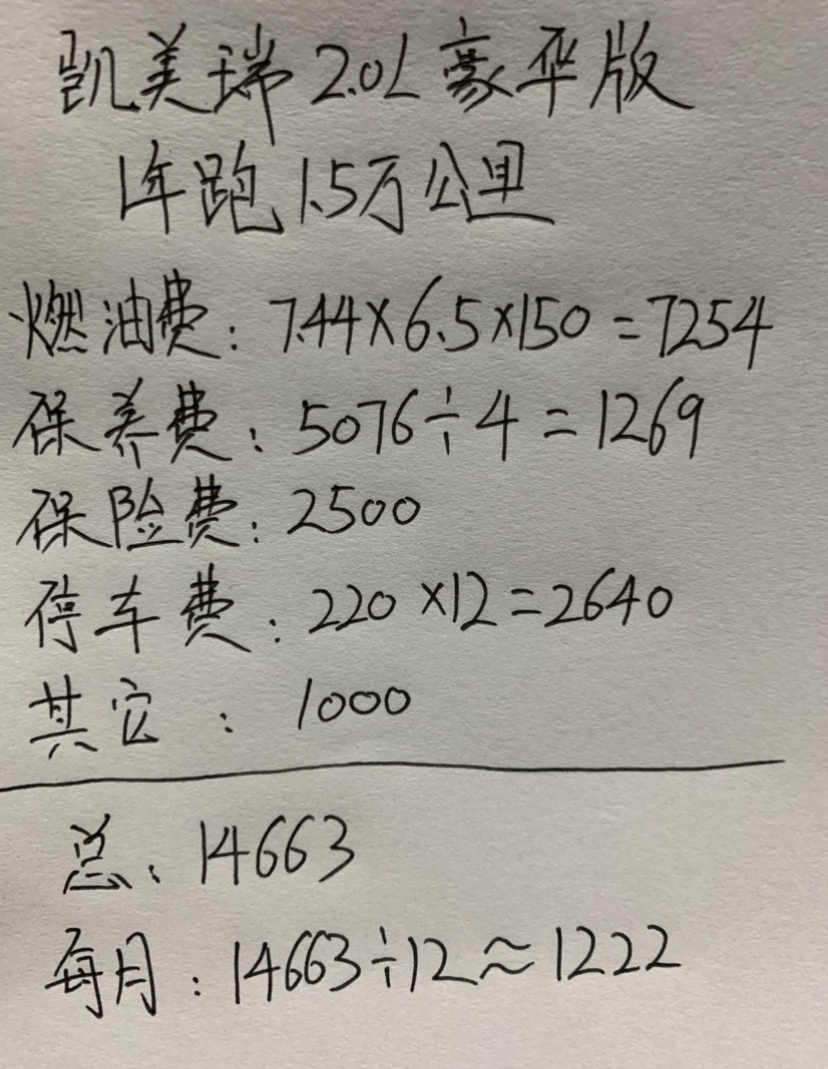 凯美瑞2.0L豪华版
1年跑1.5万公里
燃油费：7.44×6.5×150=7254
保养费：5076÷4=1269
保险费：2500
停车费：220×12=2640
其它：1000
总：14663
每月：14663÷12≈1222